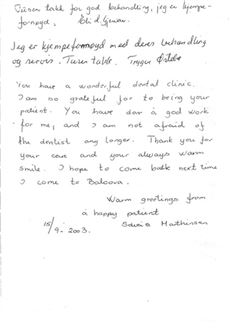 Tusen takk for god behandling, jeg er kjempe-
fornøyd.
Jeg er kjempefornøyd med deres behandling
og servis. Tusen takk. Trygve
You have a wonderful dental clinic.
I am so grateful for to being your
patient. You have dar a god work
for me, and I am not afraid of
the dentist any longer. Thank you for
your care and your always warm
smile. I hope to come back next time
I come to Balcova.
Warm greetings from
a happy patient
15/9-2003. Mathinsen